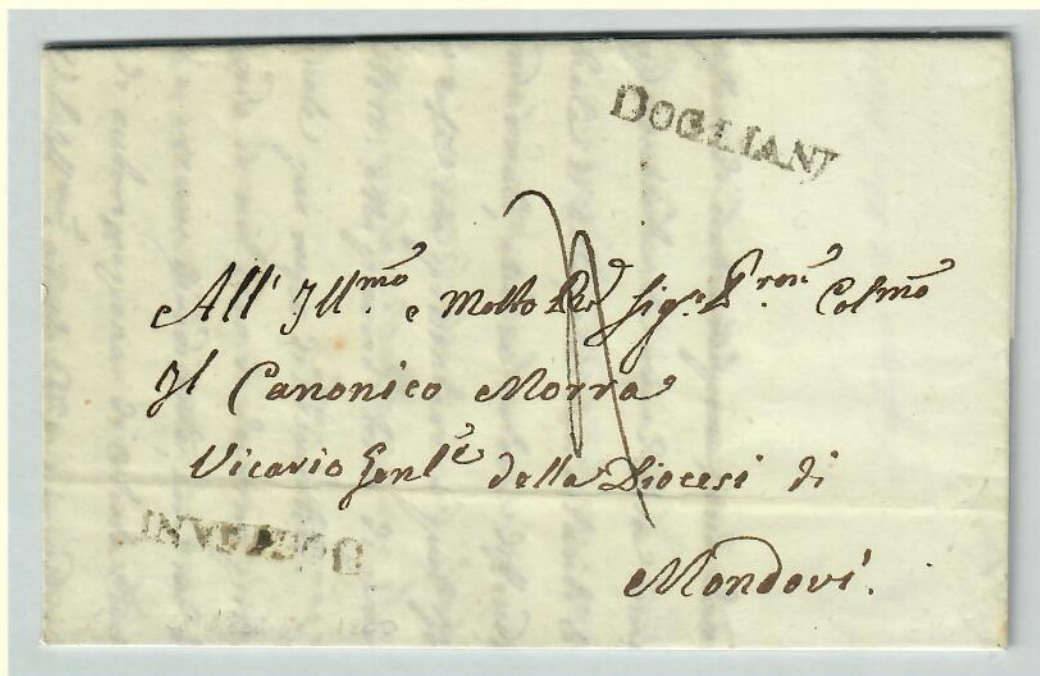 DOGLIANI
All' Ill.mo e Molto Rdo Sig.r P.ron Colmo
Il Canonico Morra
Vicario Genle della Diocesi di
Mondovì.
DOGLIANI